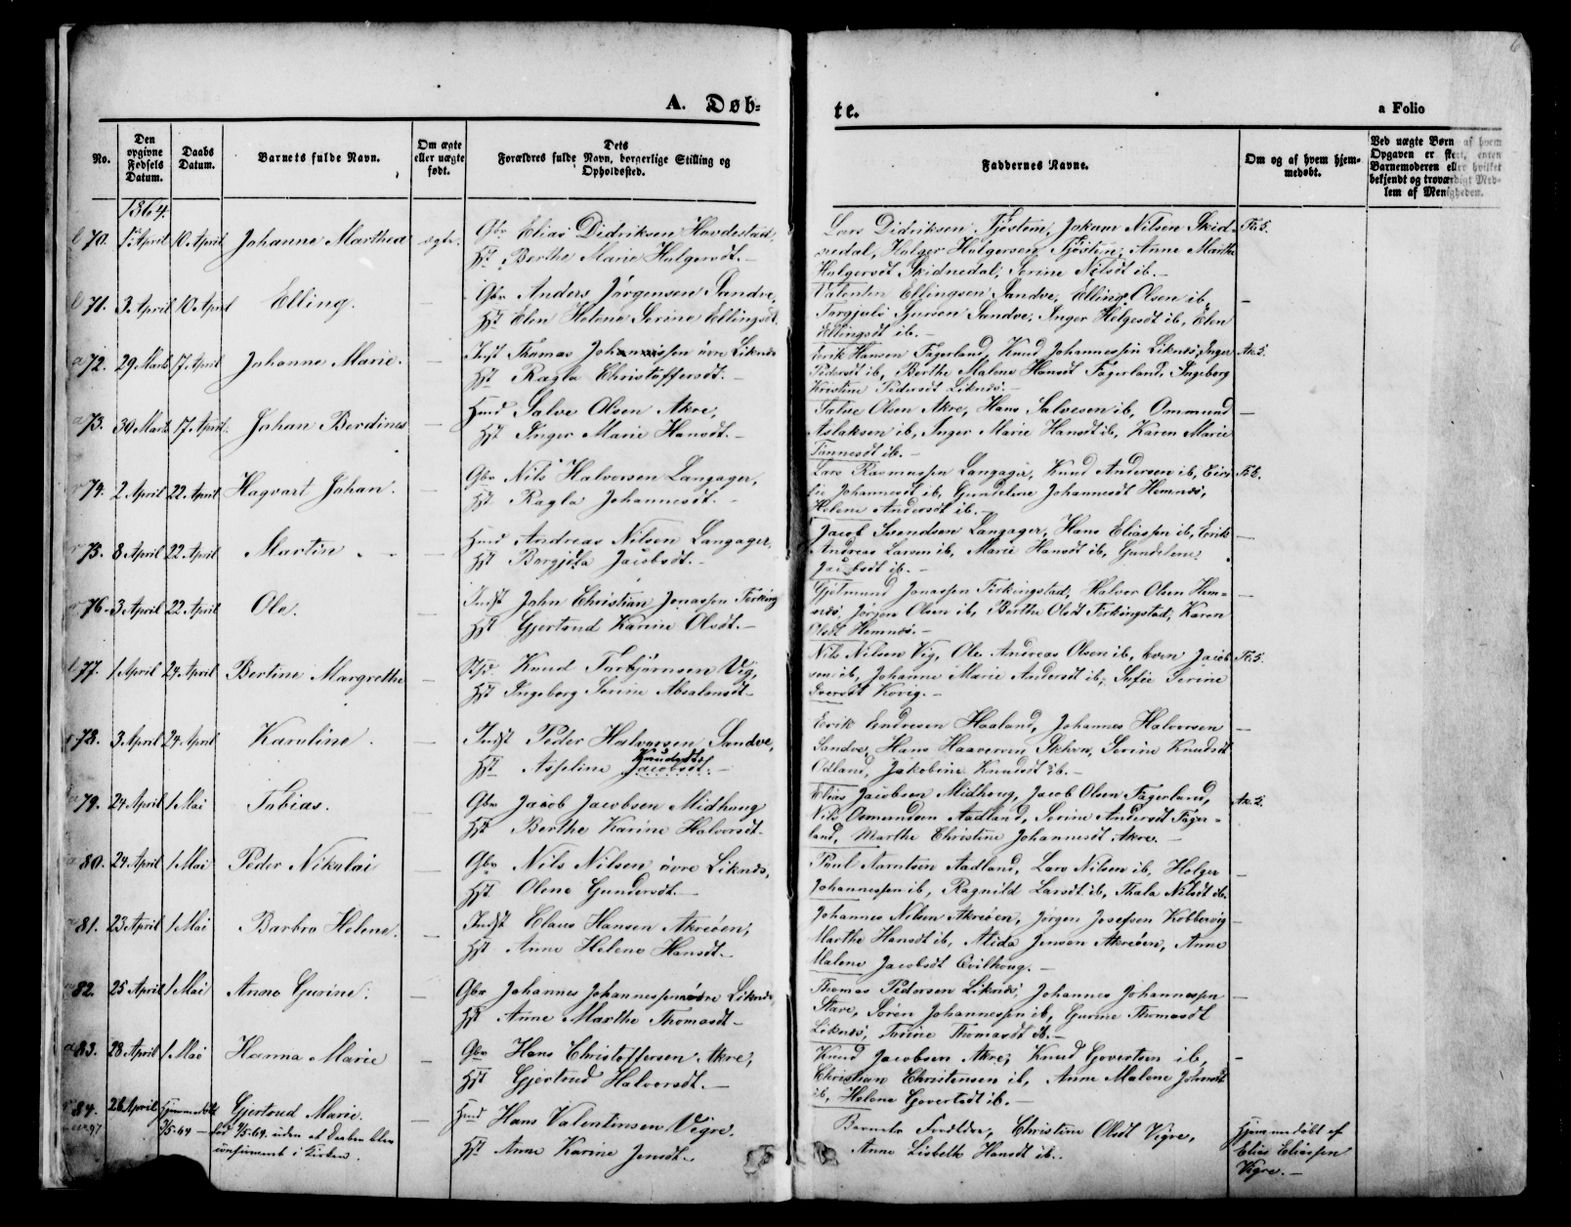 6
A. Døb-
te.
a Folio
No.
Den opgivne Fødsels Datum.
Daabs Datum.
Barnets fulde Navn.
Om ægte eller uægte født.
Dets Forældres fulde Navn, borgerlige Stilling og Opholdssted.
Faddernes Navne.
Om og af hvem hjemmedøbt.
Ved uægte Børn af hvem Opgaven er skeet, enten Barnemoderen eller hvilket bekjendt og troværdigt Medlem af Menigheden.
1864.
70. 1 April 10 April Johanne Marthea ægte. Gbr Elias Didriksen Hovdestad,
Hst Berthe Marie Holgersdt.
Lars Didriksen Fjøstene, Jokum Nilsen Skid-
nedal, Holger Holgersen Fjøstene, Anne Marthe
Holgersdt Skidnedal, Serine Nilsdt ib.
71. 3 April 10 April Elling. — Gbr Anders Jørgensen Sandve,
Hst Elen Helene Serine Ellingsdt.
Valentin Ellingsen Sandve, Elling Olsen ib,
Torgjuls Sjursen Sandve, Inger Helgesdt ib, Elen
Ellingsdt ib. —
72. 29 Marts 17 April Johanne Marie. — Indst Thomas Johannessen øvre Liknes
Hst Ragla Christoffersdt.
Erik Hansen Fagerland, Knud Johannessen Liknes, Inger
Pedersdt ib, Berthe Malene Hansdt Fagerland, Ingeborg
Kristine Pedersdt Liknes.
73. 30 Marts 17 April. Johan Berdines — Hmd Salve Olsen Akre,
Hst Inger Marie Hansdt.
Salve Olsen Akre, Hans Salvesen ib, Ommund
Aslaksen ib, Inger Marie Hansdt ib, Karen Marie
Tønnesdt ib. —
74. 2 April 22 April Hagvart Johan. — Gbr Nils Halvorsen Langager,
Hst Ragla Johannesdt.
Lars Rasmussen Langager, Knud Andersen ib,
Johannesdt ib, Gundeline Johannesdt Hemnes,
Helene Andersdt ib.
75. 8 April 22 April Martin. — Hmd Andreas Nilsen Langager,
Hst Borgjela Jacobsdt.
Jacob Svendsen Langager, Hans Eliassen ib, Erik
Andreas Larsen ib, Marie Hansdt ib, Gundelene
Jacobsdt ib. —
76. 3 April 22 April Ole. — Indst John Christian Jonassen Ferking
Hst Gjertrud Karine Olsdt.
Gjetmund Jonassen Ferkingstad, Halvor Olsen Hem-
nes, Jørgen Olsen ib, Berthe Olsdt Ferkingstad, Karen
Olsdt Hemnes.
77. 1 April 24 April Bertine Margrethe — Knud Torbjørnsen Vig,
Hst Ingeborg Serine Absalonsdt.
Nils Nilsen Vig, Ole Andreas Olsen ib, Sven Jacob-
sen ib, Johanne Marie Andersdt ib, Sofie Serine
Iversdt Kovig. —
78. 3 April 24 April Karoline. — Indst Peder Halvorsen Sandve,
Knudsdt
Hst Asseline Jacobsdt.
Erik Endresen Haaland, Johannes Halvorsen —
Sandve, Hans Haaversen Stehen, Serine Knudsdt
Odland, Jakobine Knudsdt ib.
79. 24 April 1 Mai Tobias. Gbr Jacob Jacobsen Midhoug
Hst Berthe Karine Halvorsdt.
Elias Jacobsen Midhoug, Jacob Olsen Fagerland,
Nils Osmundsen Aadland, Serine Andersdt Fager-
land, Marthe Christine Johannesdt Akre.
80. 24 April 1 Mai Peder Nikolai — Gbr Nils Nilsen øvre Liknes,
Hst Olene Gundersdt.
Poul Arntsen Aadland, Lars Nilsen ib, Holger
Johannessen ib, Ragnild Larsdt ib, Thala Nilsdt ib.
81. 23 April 1 Mai Barbro Helene. — Indst Claus Hansen Akreøen,
Hst Anne Helene Hansdt.
Johannes Nilsen Akreøen, Jørgen Josefsen Kobbervig —
Marthe Hansdt ib, Alida Jensen Akreøen, Anne
Malene Jacobsdt Qvilhoug.
82. 25 April 1 Mai Anne Gurine. — Gbr Johannes Johannessen øvre Liknes,
Hst Anne Marthe Thomasdt
Thomas Pedersen Liknes, Johannes Johannessen —
Stave, Søren Johannessen ib, Gurine Thomasdt
Liknes, Turine Thomasdt ib.
83. 28 April 1 Mai Hanna Marie — Gbr Hans Christoffersen Akre,
Hst Gjertrud Halvorsdt.
Knud Jacobsen Akre, Knud Govertsen ib, —
Christian Christensen ib, Anne Malene Johnsdt
ib, Helene Govertsdt ib.
84. 26 April Hjemmedøbt 7/5.64 — Gjertrud Marie.
før 7/5.64. uden at Daaben blev
confirmeret i Kirken.
Hmd Hans Valentinsen Vigre.
Hst Anne Karine Jensdt.
Barnets Forældre, Christine Olsdt Vigre,
Anne Lisbeth Hansdt ib.
Hjemmedøbt af
Elias Eliassen
Vigre. —